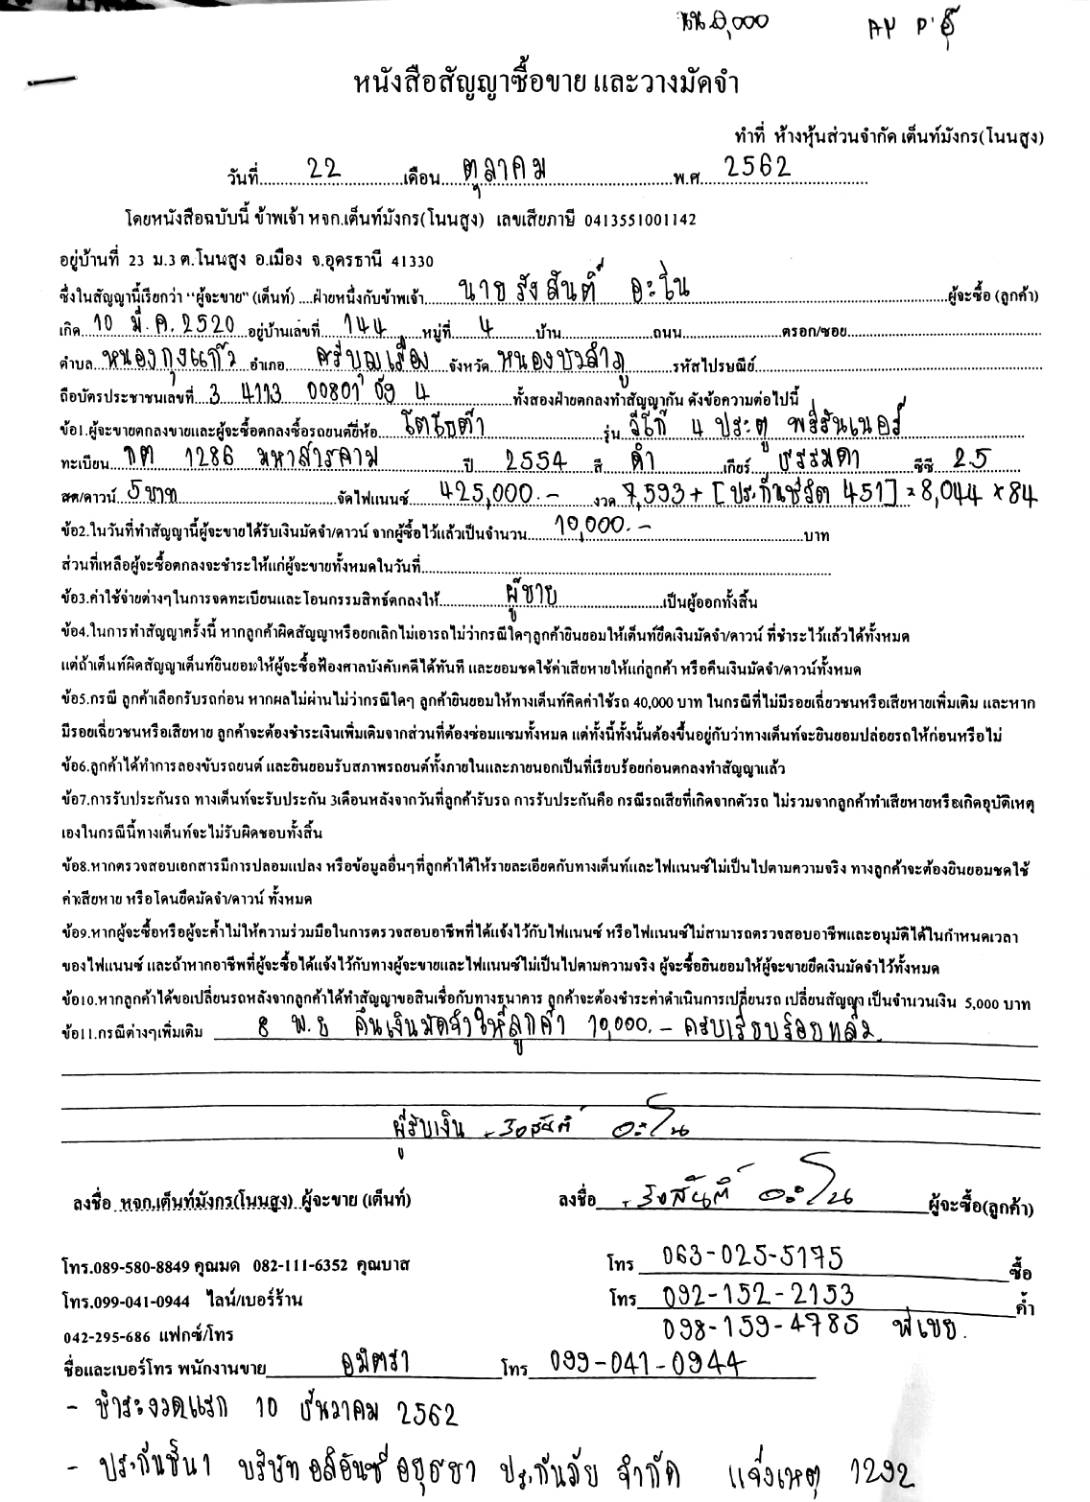 หนังสือสัญญาซื้อขาย และวางมัดจำ
ทำที่ ห้างหุ้นส่วนจำกัด เต็นท์มังกร(โนนสูง)
วันที่ 22 เดือน ตุลาคม พ.ศ 2562
โดยหนังสือฉบับนี้ ข้าพเจ้า หจก.เต็นท์มังกร(โนนสูง) เลขเสียภาษี 0413551001142
อยู่บ้านที่ 23 ม.3 ต.โนนสูง อ.เมือง จ.อุดรธานี 41330
ซึ่งในสัญญานี้เรียกว่า "ผู้จะขาย" (เต็นท์) ....ฝ่ายหนึ่งกับข้าพเจ้า นาย รังสันต์ อะโน ผู้จะซื้อ (ลูกค้า)
เกิด 10 มี.ค. 2520 อยู่บ้านเลขที่ 144 หมู่ที่ 4 บ้าน ถนน ตรอก/ซอย
ตำบล หนองกุงแก้ว อำเภอ ศรีบุญเรือง จังหวัด หนองบัวลำภู รหัสไปรษณีย์
ถือบัตรประชาชนเลขที่ 3 4113 00801 ทั้งสองฝ่ายตกลงทำสัญญากัน ดังข้อความต่อไปนี้
ข้อ1.ผู้จะขายตกลงขายและผู้จะซื้อตกลงซื้อรถยนต์ยี่ห้อ โตโยต้า รุ่น วีโก้ 4 ประตู พรีรันเนอร์
ทะเบียน กต 1286 มหาสารคาม ปี 2554 สี ดำ เกียร์ ธรรมดา ซีซี 2.5
สด/ดาวน์ 5 บาท จัดไฟแนนซ์ 425,000.- งวด 7,593 + [ประกันชีวิต 451] = 8,044 × 84
ข้อ2.ในวันที่ทำสัญญานี้ผู้จะขายได้รับเงินมัดจำ/ดาวน์ จากผู้ซื้อไว้แล้วเป็นจำนวน 10,000.- บาท
ส่วนที่เหลือผู้จะซื้อตกลงจะชำระให้แก่ผู้จะขายทั้งหมดในวันที่
ข้อ3.ค่าใช้จ่ายต่างๆในการจดทะเบียนและโอนกรรมสิทธ์ตกลงให้ ผู้ขาย เป็นผู้ออกทั้งสิ้น
ข้อ4.ในการทำสัญญาครั้งนี้ หากลูกค้าผิดสัญญาหรือยกเลิกไม่เอารถไม่ว่ากรณีใดๆลูกค้ายินยอมให้เต็นท์ยึดเงินมัดจำ/ดาวน์ ที่ชำระไว้แล้วได้ทั้งหมด
แต่ถ้าเต็นท์ผิดสัญญาเต็นท์ยินยอมให้ผู้จะซื้อฟ้องศาลบังคับคดีได้ทันที และยอมชดใช้ค่าเสียหายให้แก่ลูกค้า หรือคืนเงินมัดจำ/ดาวน์ทั้งหมด
ข้อ5.กรณี ลูกค้าเลือกรับรถก่อน หากผลไม่ผ่านไม่ว่ากรณีใดๆ ลูกค้ายินยอมให้ทางเต็นท์คิดค่าใช้รถ 40,000 บาท ในกรณีที่ไม่มีรอยเฉี่ยวชนหรือเสียหายเพิ่มเติม และหาก
มีรอยเฉี่ยวชนหรือเสียหาย ลูกค้าจะต้องชำระเงินเพิ่มเติมจากส่วนที่ต้องซ่อมแซมทั้งหมด แต่ทั้งนี้ทั้งนั้นต้องขึ้นอยู่กับว่าทางเต็นท์จะยินยอมปล่อยรถให้ก่อนหรือไม่
ข้อ6.ลูกค้าได้ทำการลองขับรถยนต์ และยินยอมรับสภาพรถยนต์ทั้งภายในและภายนอกเป็นที่เรียบร้อยก่อนตกลงทำสัญญาแล้ว
ข้อ7.การรับประกันรถ ทางเต็นท์จะรับประกัน 3เดือนหลังจากวันที่ลูกค้ารับรถ การรับประกันคือ กรณีรถเสียที่เกิดจากตัวรถ ไม่รวมจากลูกค้าทำเสียหายหรือเกิดอุบัติเหตุ
เองในกรณีนี้ทางเต็นท์จะไม่รับผิดชอบทั้งสิ้น
ข้อ8.หากตรวจสอบเอกสารมีการปลอมแปลง หรือข้อมูลอื่นๆที่ลูกค้าได้ให้รายละเอียดกับทางเต็นท์และไฟแนนซ์ไม่เป็นไปตามความจริง ทางลูกค้าจะต้องยินยอมชดใช้
ค่าเสียหาย หรือโดนยึดมัดจำ/ดาวน์ ทั้งหมด
ข้อ9.หากผู้จะซื้อหรือผู้จะค้ำไม่ให้ความร่วมมือในการตรวจสอบอาชีพที่ได้แจ้งไว้กับไฟแนนซ์ หรือไฟแนนซ์ไม่สามารถตรวจสอบอาชีพและอนุมัติได้ในกำหนดเวลา
ของไฟแนนซ์ และถ้าหากอาชีพที่ผู้จะซื้อได้แจ้งไว้กับทางผู้จะขายและไฟแนนซ์ไม่เป็นไปตามความจริง ผู้จะซื้อยินยอมให้ผู้จะขายยึดเงินมัดจำไว้ทั้งหมด
ข้อ10.หากลูกค้าได้ขอเปลี่ยนรถหลังจากลูกค้าได้ทำสัญญาขอสินเชื่อกับทางธนาคาร ลูกค้าจะต้องชำระค่าดำเนินการเปลี่ยนรถ เปลี่ยนสัญญา เป็นจำนวนเงิน 5,000 บาท
ข้อ11.กรณีต่างๆเพิ่มเติม 8 พ.ย คืนเงินมัดจำให้ลูกค้า 10,000.- ครบเรียบร้อยแล้ว
ผู้รับเงิน รังสันต์ อะโน
ลงชื่อ หจก.เต็นท์มังกร(โนนสูง) ผู้จะขาย (เต็นท์) ลงชื่อ รังสันต์ อะโน ผู้จะซื้อ(ลูกค้า)
โทร.089-580-8849 คุณมด 082-111-6352 คุณบาส โทร 063-025-5175 ซื้อ
โทร.099-041-0944 ไลน์/เบอร์ร้าน โทร 092-152-2153 ค้ำ
042-295-686 แฟกซ์/โทร 098-159-4785 พี่เขย.
ชื่อและเบอร์โทร พนักงานขาย อมิตรา โทร 099-041-0944
- ชำระงวดแรก 10 ธันวาคม 2562
- ประกันชั้น 1 บริษัท อลิอันซ์ อยุธยา ประกันภัย จำกัด แจ้งเหตุ 1292